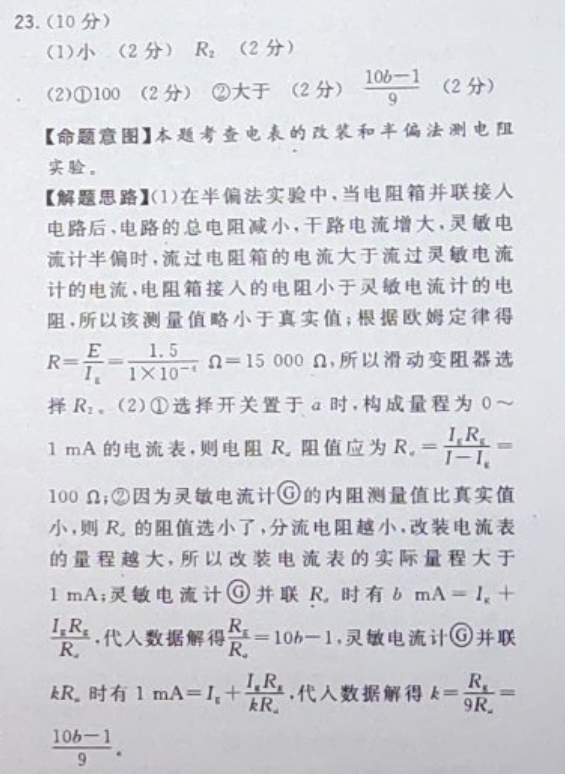 23.(10分)
(1)小 (2分) R₂ (2分)
(2)①100 (2分) ②大于 (2分) (10b−1)/9 (2分)
【命题意图】本题考查电表的改装和半偏法测电阻
实验。
【解题思路】(1)在半偏法实验中,当电阻箱并联接入
电路后,电路的总电阻减小,干路电流增大,灵敏电
流计半偏时,流过电阻箱的电流大于流过灵敏电流
计的电流,电阻箱接入的电阻小于灵敏电流计的电
阻,所以该测量值略小于真实值;根据欧姆定律得
R=E/I_g=1.5/(1×10⁻⁴) Ω=15 000 Ω,所以滑动变阻器选
择 R₂。(2)①选择开关置于 a 时,构成量程为 0～
1 mA 的电流表,则电阻 Rₐ 阻值应为 Rₐ=I_gR_g/(I−I_g)=
100 Ω;②因为灵敏电流计Ⓖ的内阻测量值比真实值
小,则 Rₐ 的阻值选小了,分流电阻越小,改装电流表
的量程越大,所以改装电流表的实际量程大于
1 mA;灵敏电流计Ⓖ并联 Rₐ 时有 b mA=I_g+
I_gR_g/Rₐ,代入数据解得R_g/Rₐ=10b−1,灵敏电流计Ⓖ并联
kRₐ 时有 1 mA=I_g+I_gR_g/(kRₐ),代入数据解得 k=R_g/(9Rₐ)=
(10b−1)/9。